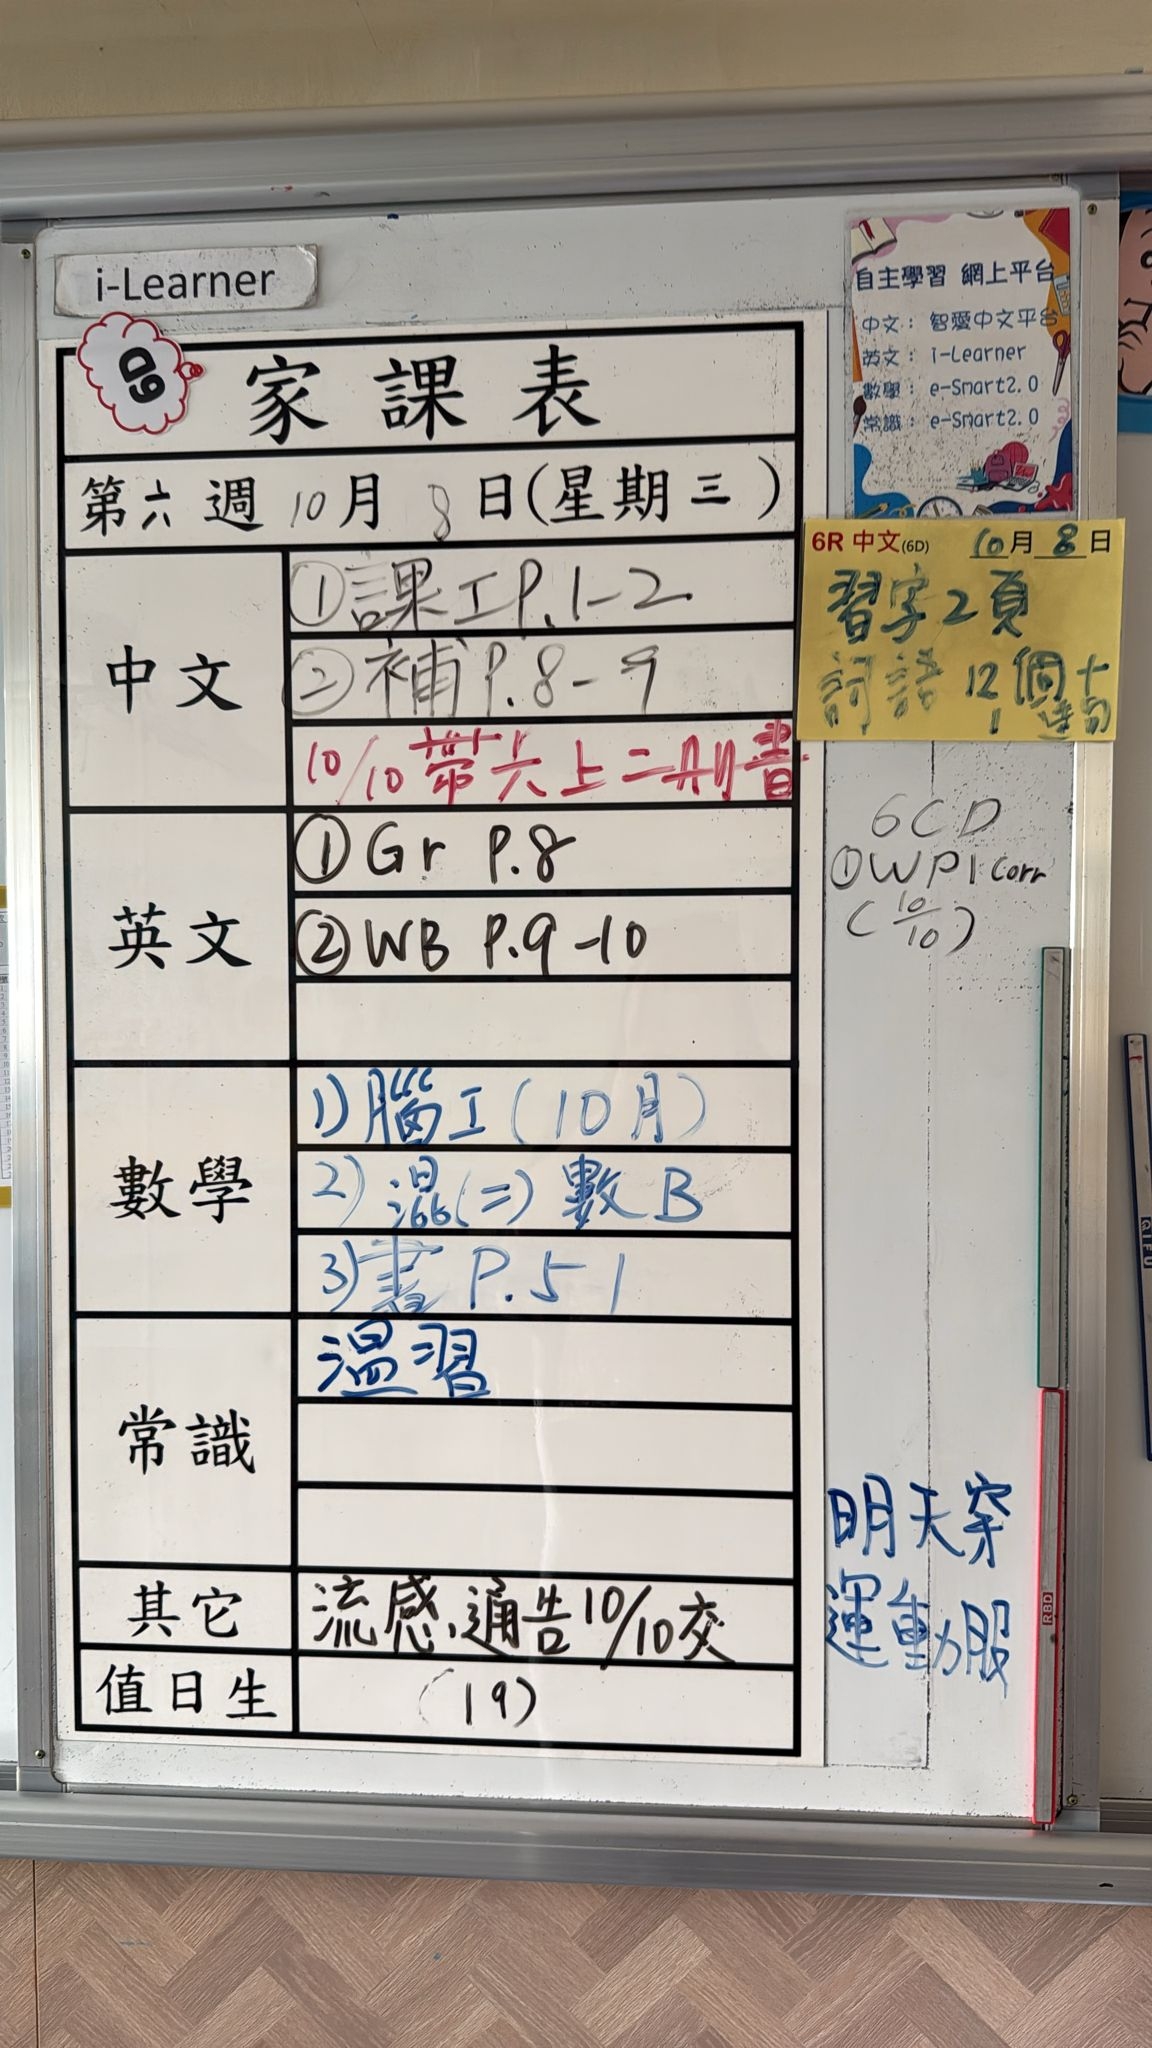 i-Learner
6D
家課表
第六週 10月 8日(星期三)
中文
①課工P.1-2
②補P.8-9
10/10 帶六上二冊書
英文
①Gr P.8
②WB P.9-10
數學
1)腦工(10月)
2)混(二)數B
3)書P.51
常識
溫習
其它
流感通告10/10交
值日生
(19)
自主學習 網上平台
中文: 智愛中文平台
英文: i-Learner
數學: e-Smart2.0
常識: e-Smart2.0
6R 中文(6D) 10月8日
習字2頁
詞語 12個
6CD
①WP1 corr
(10/10)
明天穿
運動服
RBD